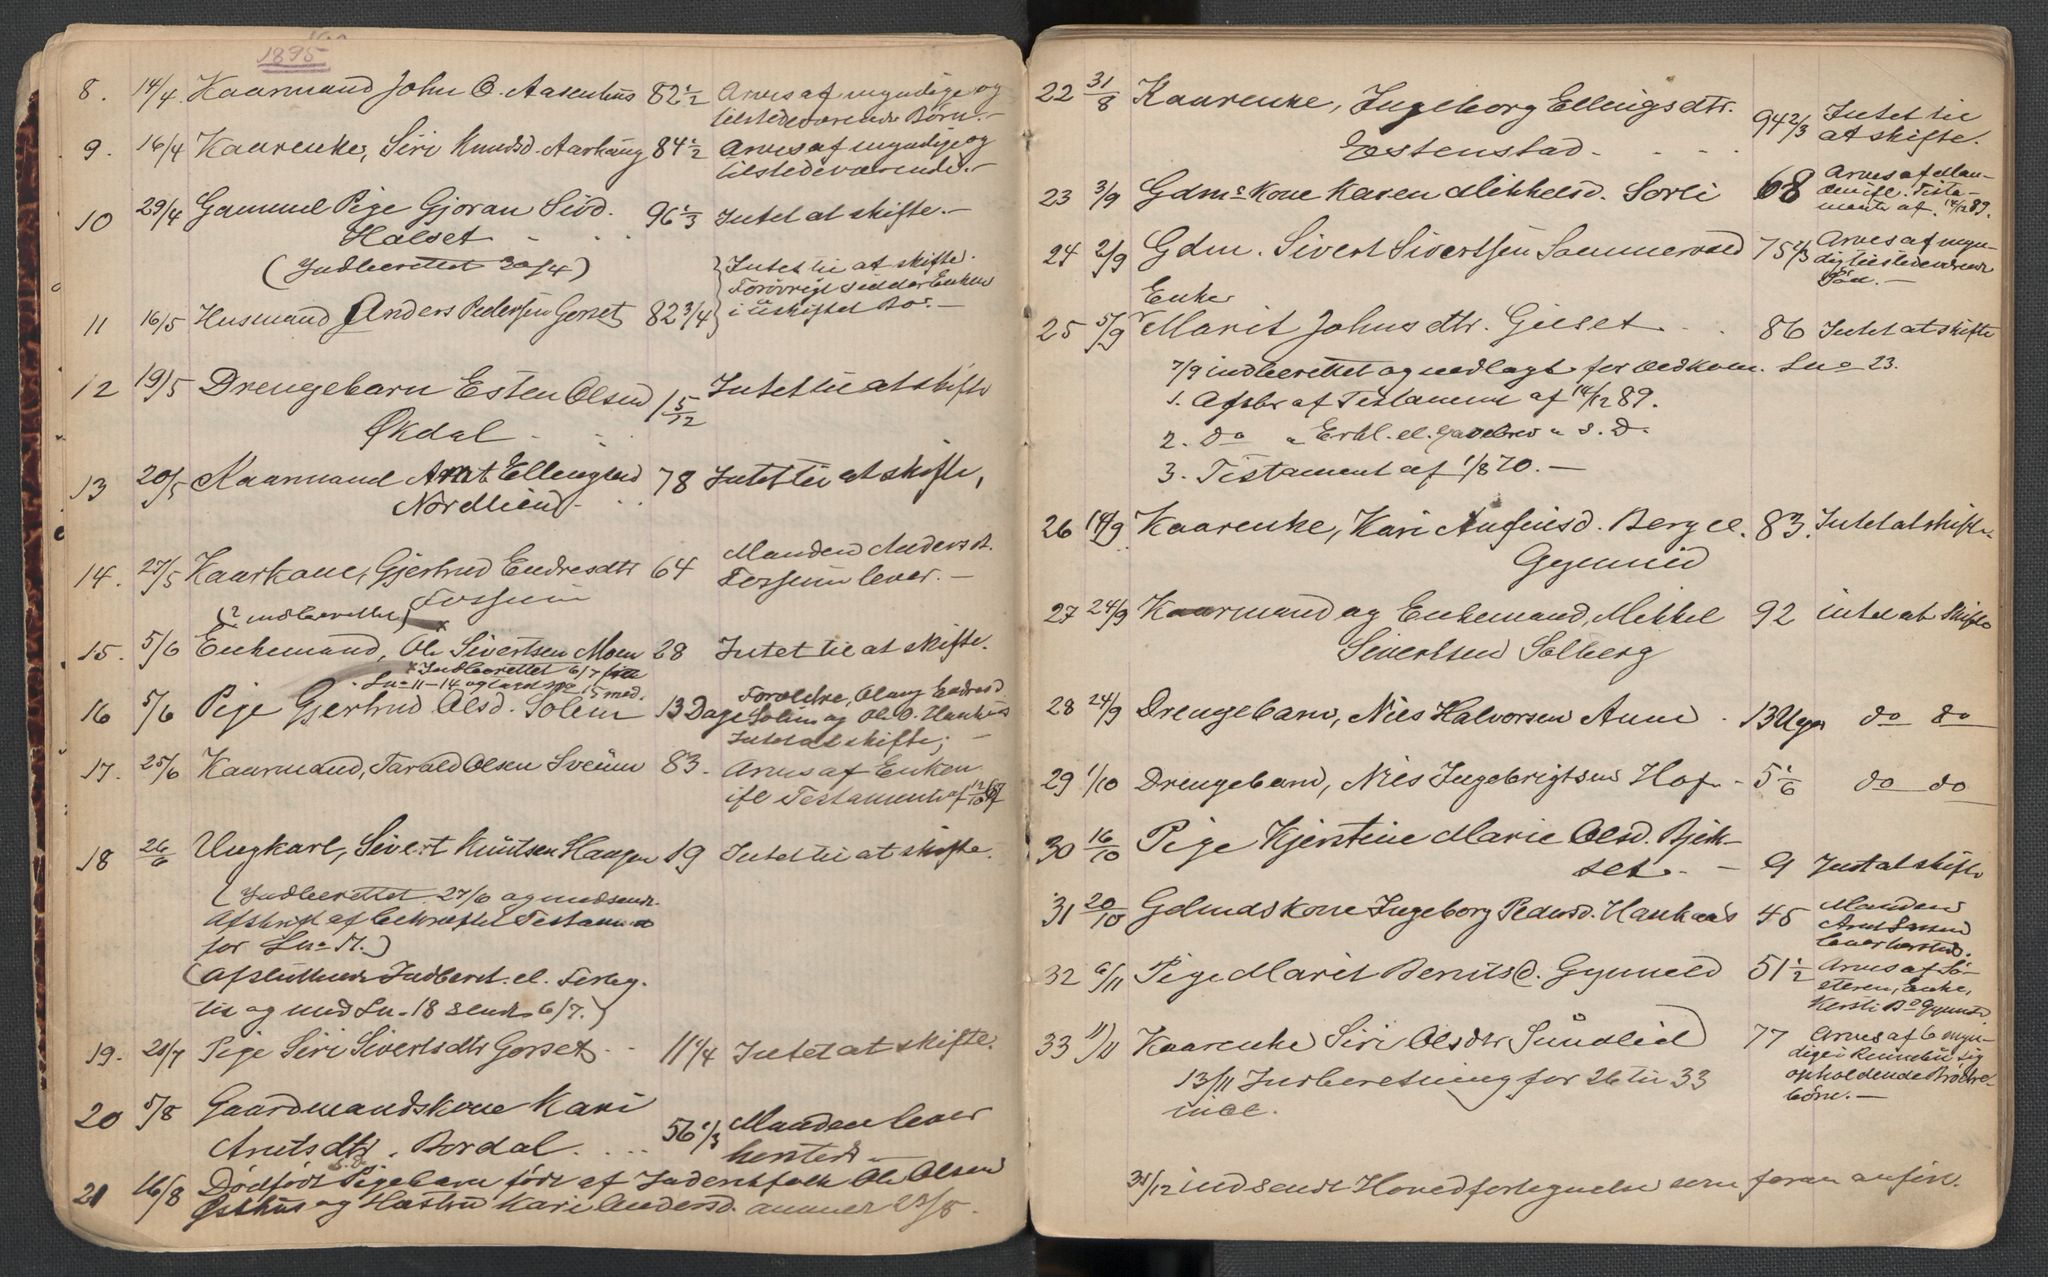 1895
8. 14/4. Kaarmand John O. Aasenhus 82 1/2 Arves af myndige og
tilstedeværende Børn.-
9. 16/4 Kaarenke, Siri Knudsd. Aarhaug 84 1/2 Arves af myndige og
tilstedeværende.-
10 29/4 Gammel Pige Gjøran Sivd. 96 1/3 Intet at skifte.-
Halset
(Indberettet 30/4)
Intet til at skifte.
Forøvrigt sidder Enken
11 16/5 Husmand Anders Pedersen Gorset 82 3/4 i uskiftet Bo.-
12 19/5 Drengebarn Esten Olsen 1 5/12 Intet til at skifte
Økdal
13 20/5 Kaarmand Arnt Ellingsen 78 Intet til at skifte,
Nordlien
14. 27/5 Kaarkone, Gjertrud Endresdtr 64 Manden Anders A.
Fossum lever.-
Fossum
(indberettet)
15. 5/6 Enkemand, Ole Sivertsen Moen 28 Intet til at skifte.
x Indberettet 6/7
Lno 11-14 og med.
16 5/6 Pige Gjertrud Olsd. Solem 13 Dage Forældre, Olaug Endresd.
Solem og Ole O. Haukaas
Intet at skifte;
17. 25/6 Kaarmand, Tarald Olsen Sveum 83. Arves af Enken
ifl Testamente af 12/10 67
18 26/6 Ungkarl, Sivert Knutsen Haugen 19 Intet til at skifte.
(Indberettet 27/6 og medsendt
Afskrift af bekræftet Testament
for Lno 17.)
(Afsluttende Indberet. el. Forteg.
til og med Ln. 18 sendt 6/7.)
19. 28/7 Pige Siri Sivertsdtr Gorset 11 1/4 Intet at skifte.
20 5/8 Gaardmandskone Kari
Arntsdtr. Bordal 56 1/3 Manden lever
hersteds
21 16/8 Dødfødt Pigebarn født af Inderstfolk Ole Olsen
Østhus og Hustru Kari Andersd.
22 31/8 Kaarenke, Ingeborg Ellingsdtr.
Estenstad 94 2/3 Intet til
at skifte.
23 3/9 Gdms Kone Karen Mikkelsd. Sørli 68 Arves af Man-
den ifl. Testa-
mente af. 14/12 89.
24 2/9 Gdm. Sivert Sivertsen Sommervold 75 2/3 Arves af myn-
dig tilstedeværende
Søn.-
Enke
25 5/9 Marit Johnsdtr. Gieset 86 Intet at skifte
7/9 indberettet og vedlagt for Vedkom. Lno 23.
1. Afskr af Testament af 14/12 89.
2. Do " Erkl. el. Gavebrev " s. D.
3. Testament af 1/8 70.-
26 14/9 Kaarenke, Kari Anfinsd. Berg el. 83. Intet at skifte
Gynnild
27 24/9 Kaarmand og Enkemand, Mikkel 92 intet at skifte
Sivertsen Solberg
28 24/9 Drengebarn, Nils Halvorsen Aune 13 Uger do do
29 1/10 Drengebarn, Nils Ingebrigtsen Hof 5 1/6 do do
30 16/10 Pige Kjerstine Marie Olsd. Bjerk-
set 9 Intet at skifte
31 20/10 Gdmdskone Ingeborg Pedersd. Haukaas 45 Manden
Arnt Larsen
lever hersted.
32 6/11 Pige Marit Berntsd. Gynneld 51 1/2 Arves af Sø-
steren, Enke,
Kersti Bd Gynneld
33 11/11 Kaarenke Siri Olsdtr Sundlid 77 Arves af 6 myn-
dige i Rennebu sig
opholdende Brødre-
børn.-
13/11 Indberetning for 26 til 33
incl.
31/12 indsendt Hovedfortegnelse som foran anført.